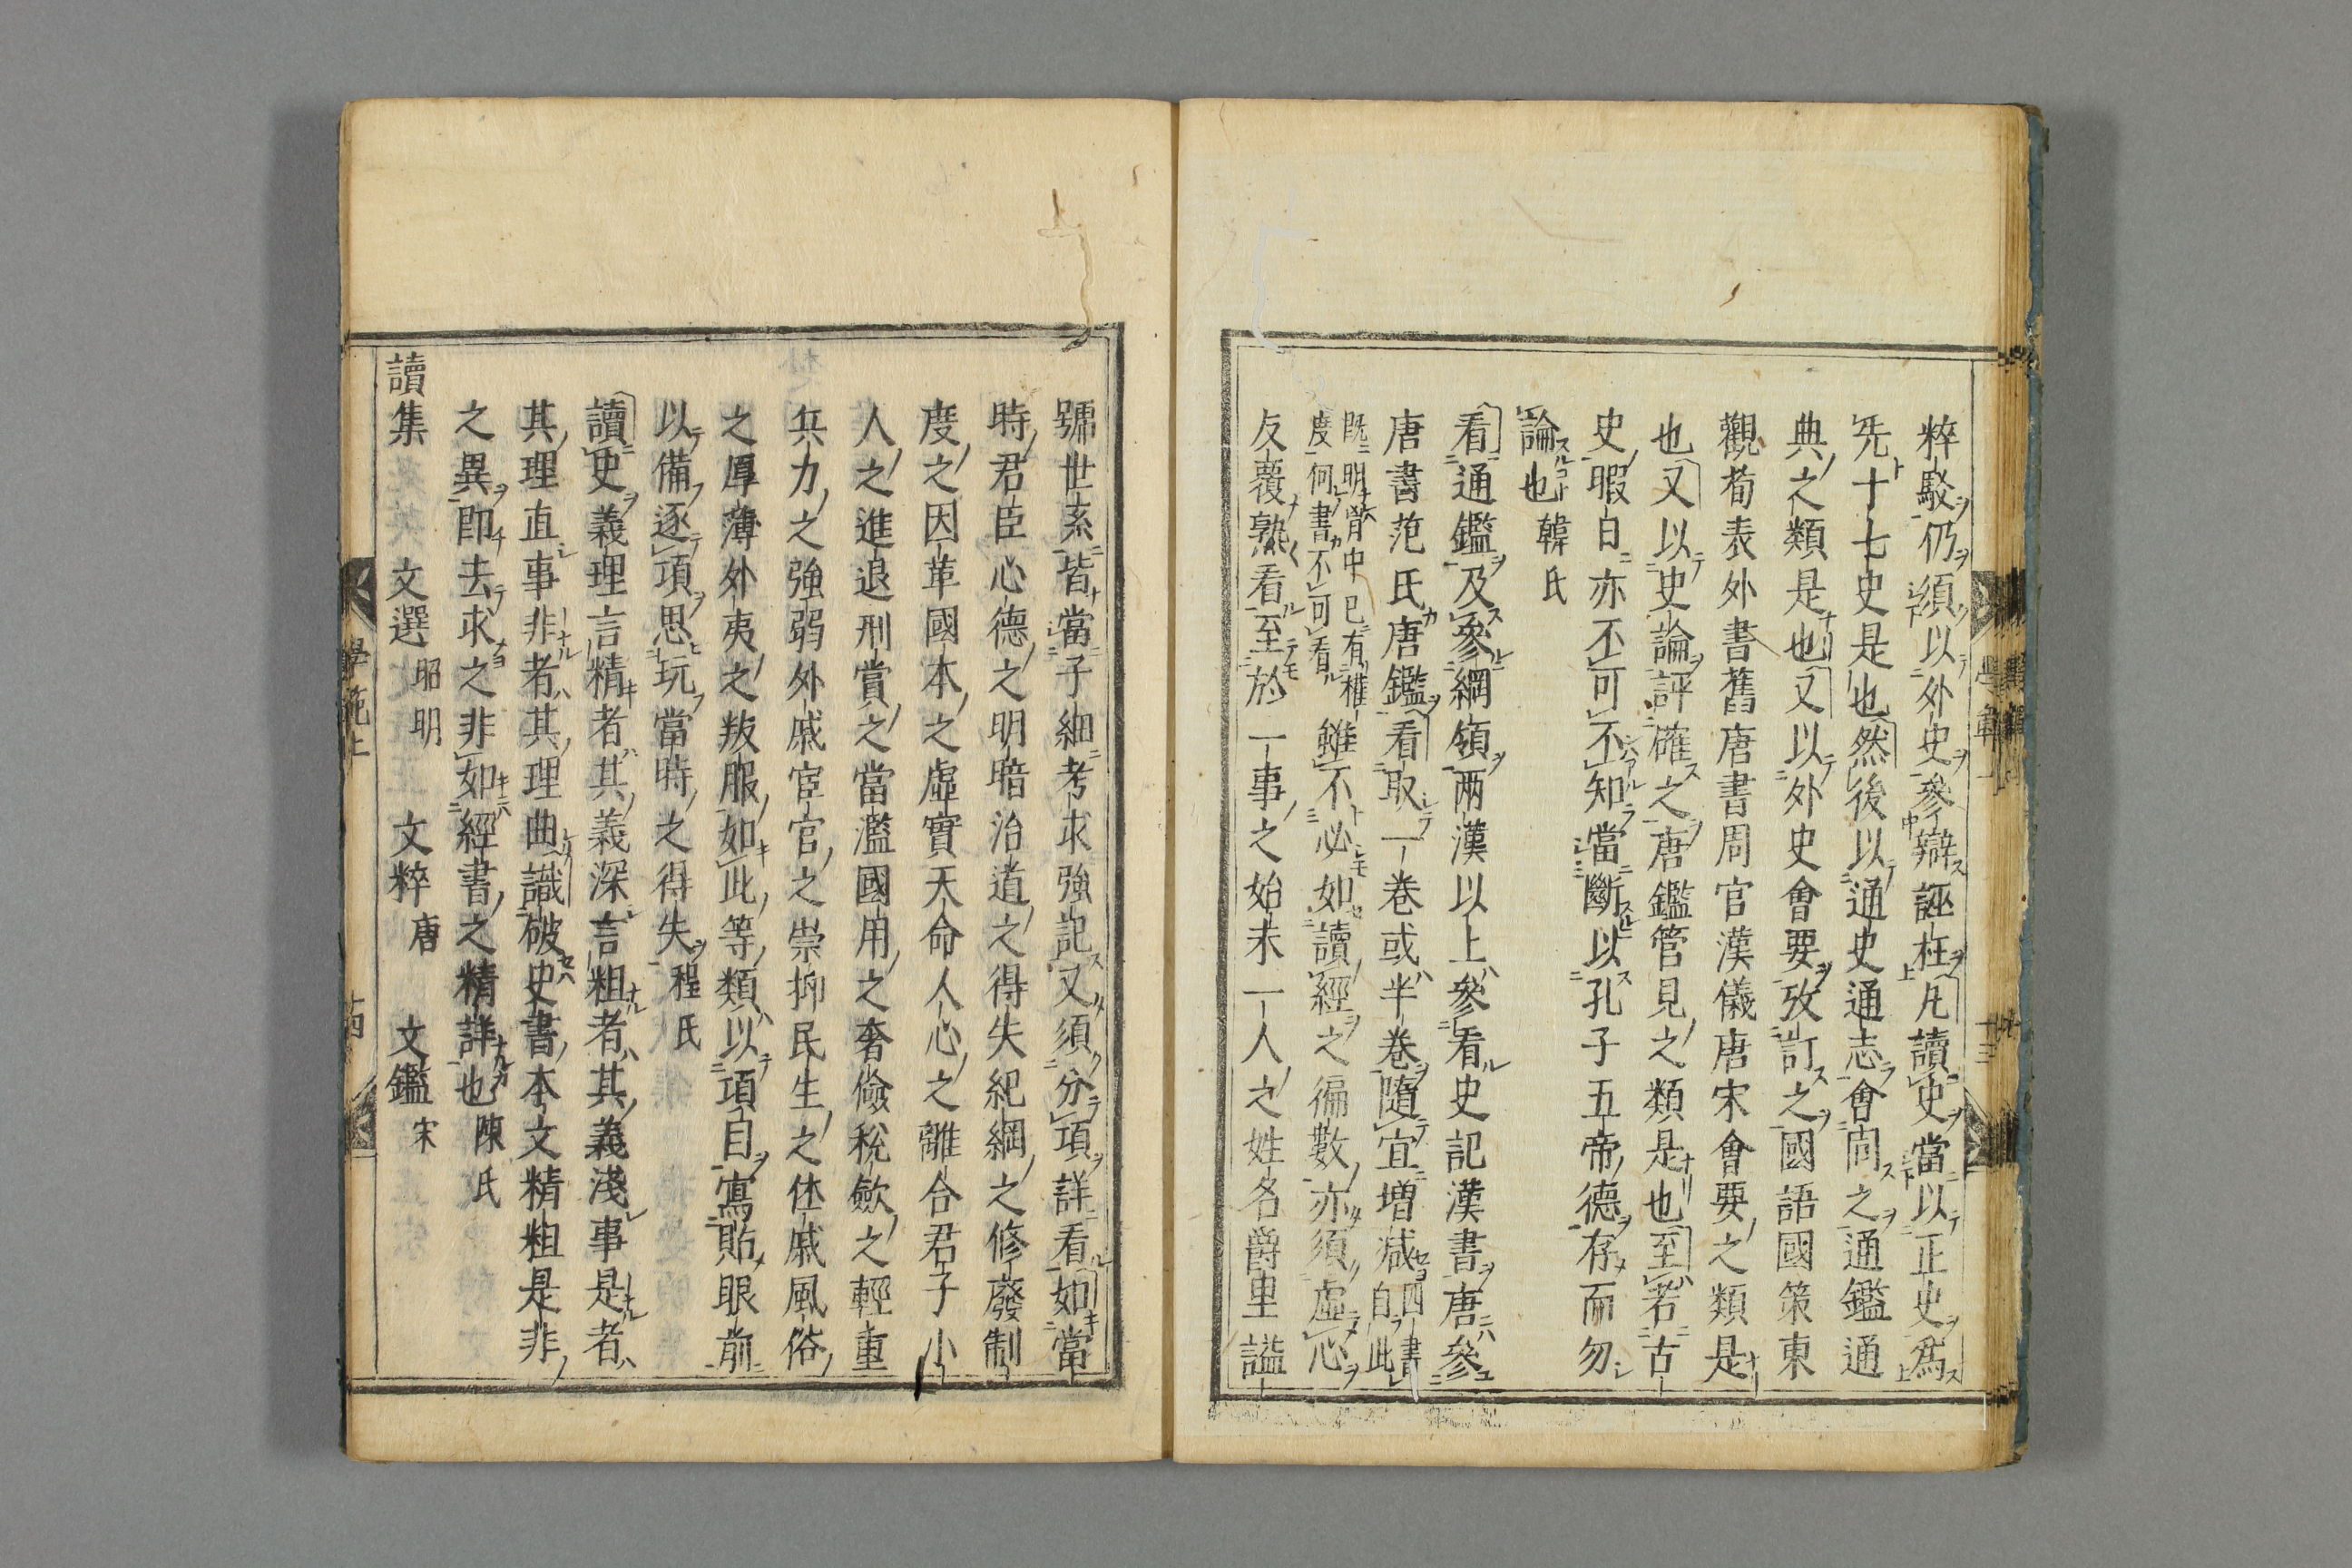 粹駁仍須以外史參辯誣枉凡讀史當以正史爲
先十七史是也然後以通史通志會同之通鑑通
典之類是也又以外史會要攷訂之國語國策東
觀荀表外書舊唐書周官漢儀唐宋會要之類是
也又以史論評確之唐鑑管見之類是也至若古
史暇日亦不可不知當斷以孔子五帝德存而勿
論也 韓氏
看通鑑及參綱領兩漢以上參看史記漢書唐參
唐書范氏唐鑑看取一卷或半卷隨宜增減四書
自此
既明胷中已有權
度何書不可看
雖不必如讀經之徧數亦須虛心
反覆熟看至於一事之始末一人之姓名爵里謚
號世系皆當子細考求強記又須分項詳看如當
時君臣心德之明暗治道之得失紀綱之修廢制
度之因革國本之虛實天命人心之離合君子小
人之進退刑賞之當濫國用之奢儉稅斂之輕重
兵力之強弱外戚宦官之崇抑民生之休戚風俗
之厚薄外夷之叛服如此等類以項目寫貼眼前
以備逐項思玩當時之得失 程氏
讀史義理言精者其義深言粗者其義淺事是者
其理直事非者其理曲識破史書本文精粗是非
之異即去求之非如經書之精詳也 陳氏
讀集 文選 昭明 文粹 唐 文鑑 宋
學範上
十四
十三